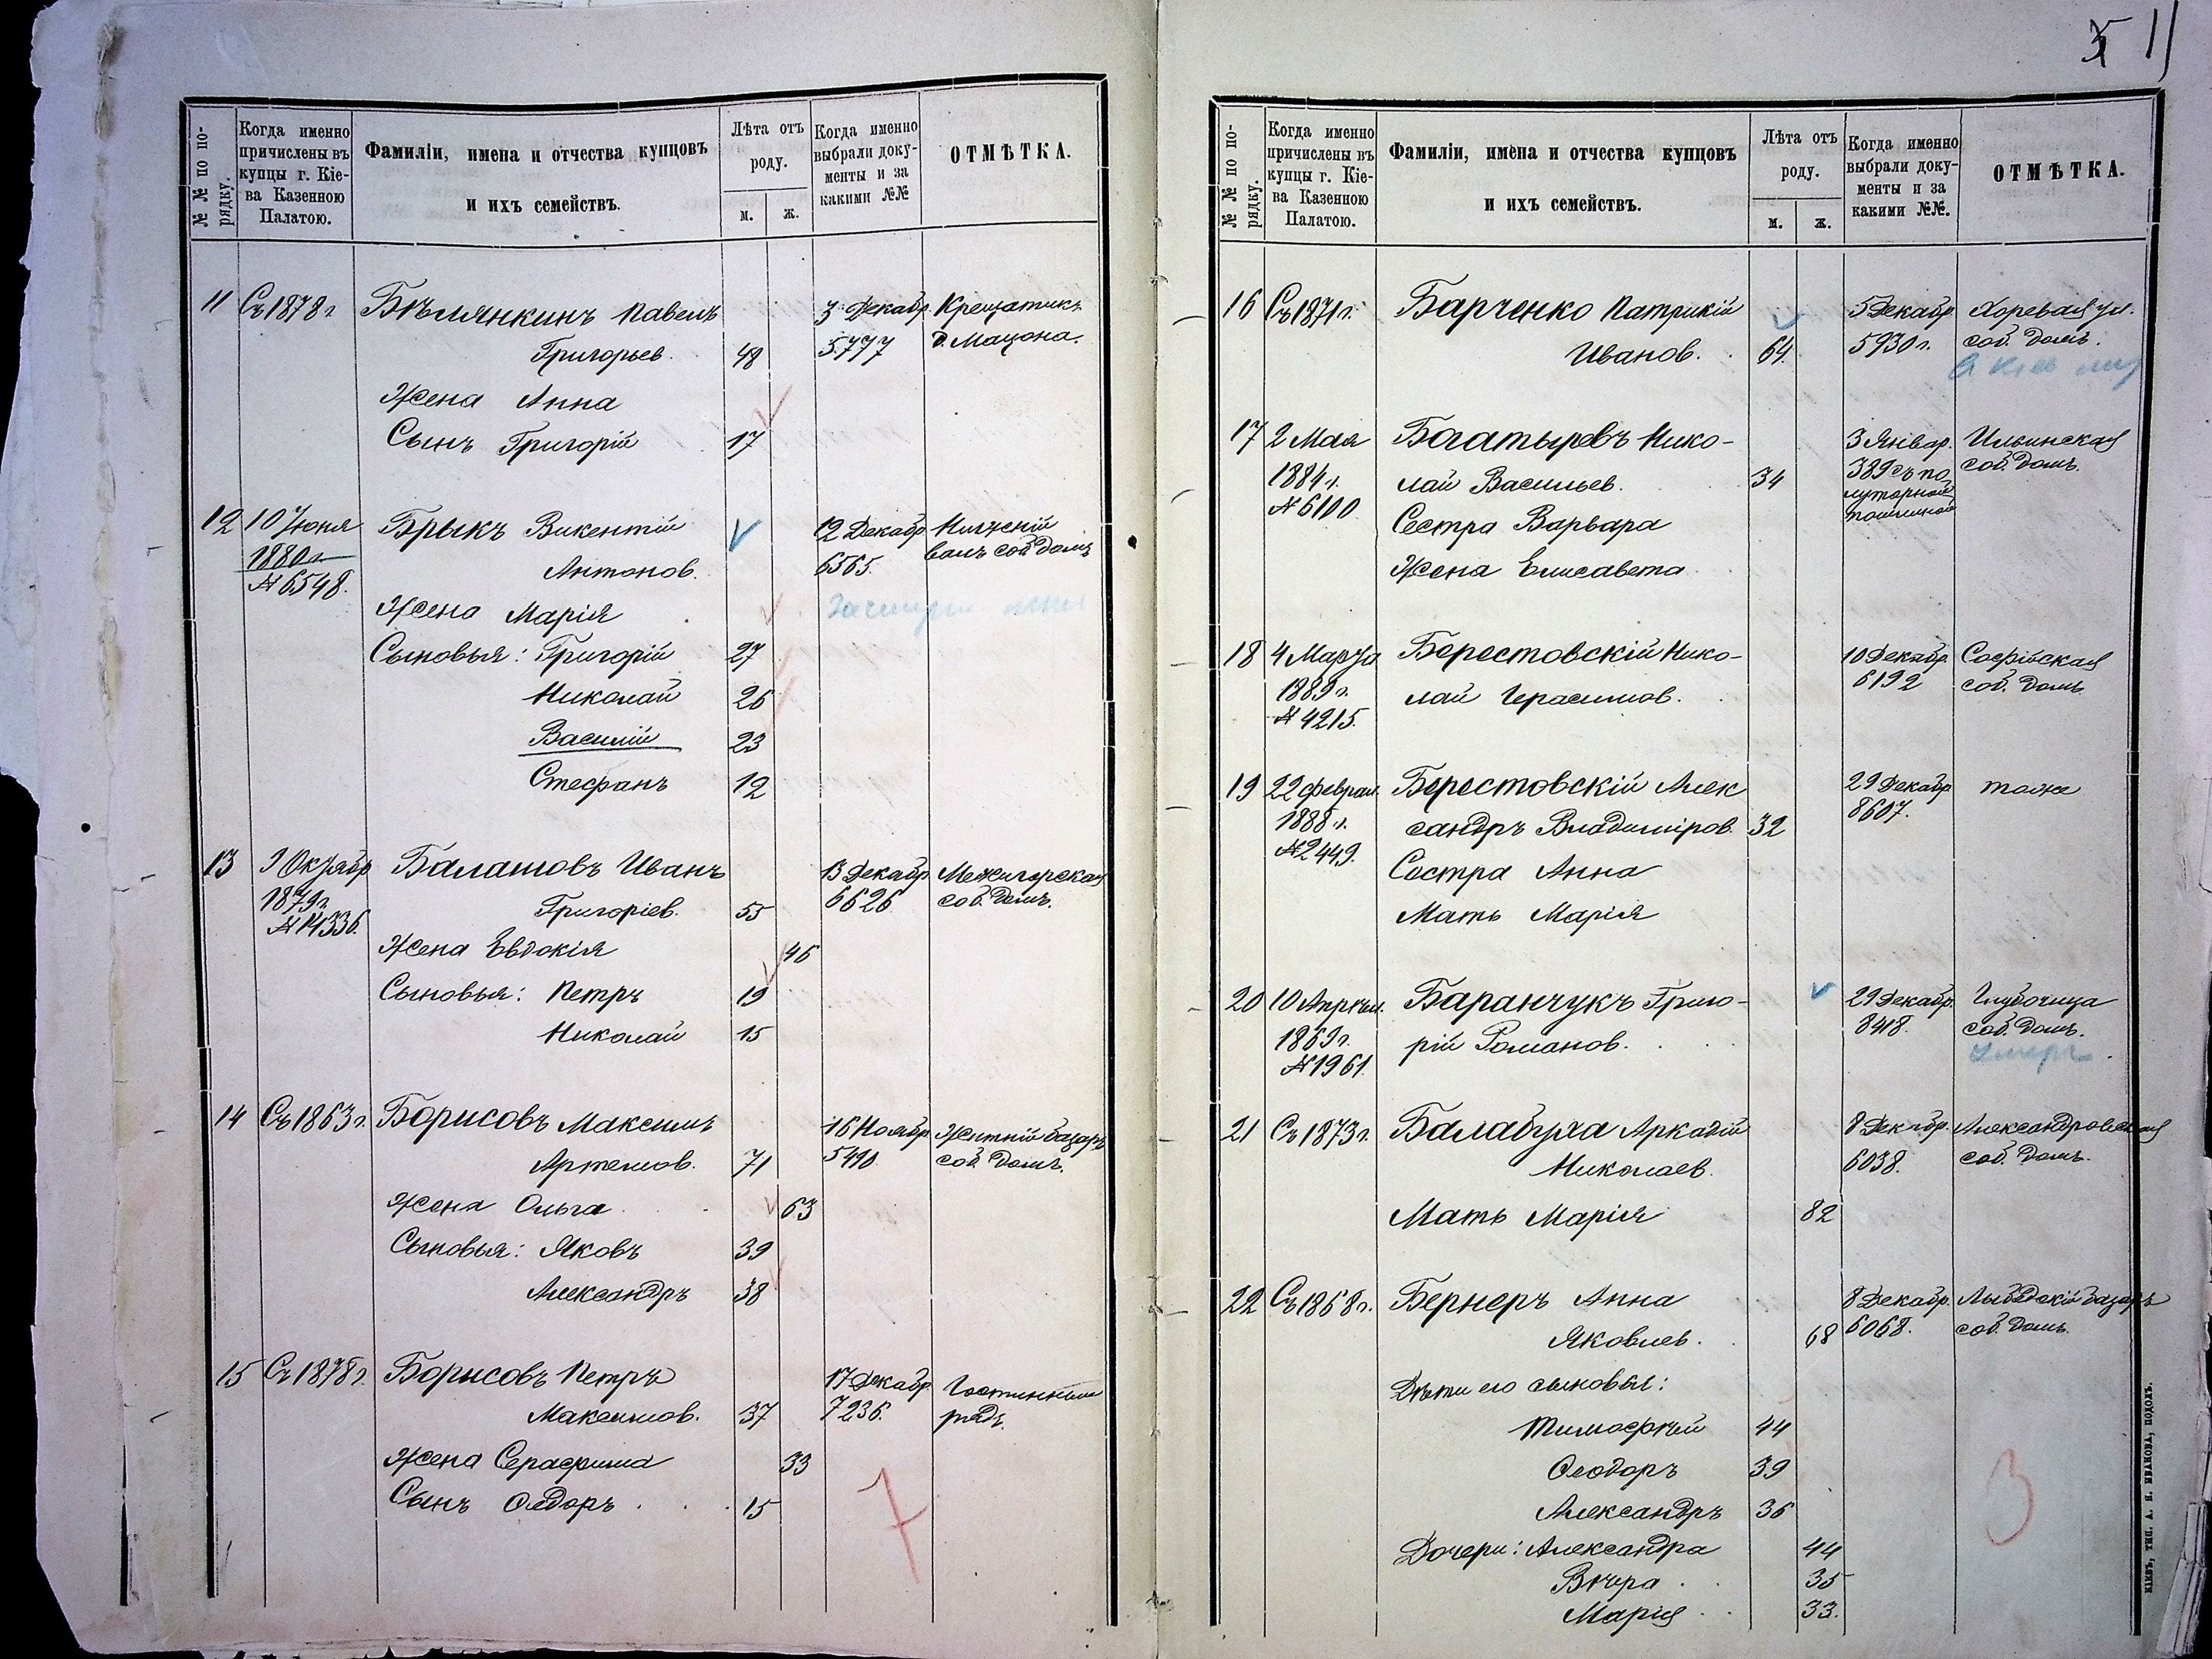 5 11
№ № по по-
рядку.
Когда именно
причислены въ
купцы г. Кіе-
ва Казенною
Палатою.
Фамиліи, имена и отчества купцовъ
и ихъ семействъ.
Лѣта отъ
роду.
м. ж.
Когда именно
выбрали доку-
менты и за
какими №№
ОТМѢТКА.
11 Съ 1878 г. Бѣлянкинъ Павелъ 3 Декабр. Крещатикъ
Григорьев. 48 5777 д. Мацона.
Жена Анна
Сынъ Григорій 17
12 10 Іюня Брыкъ Викентій 12 Декабр Нижній
1880 г. Антонов. 6565. валъ соб. домъ
№ 6548.
Жена Марія
Сыновья: Григорій 27
Николай 26
Василій 23
Стефанъ 12
13 9 Октябр Балашовъ Иванъ 13 Декабр Межигорская
1879 г. Григоріев. 55 6626 соб. домъ.
№ 14336.
Жена Евдокія 46
Сыновья: Петръ 19
Николай 15
14 Съ 1863 г. Борисовъ Максимъ 16 Ноябр. Житній базаръ
Артемов. 71 5490 соб. домъ.
Жена Ольга 63
Сыновья: Яковъ 39
Александръ 38
15 Съ 1878 г. Борисовъ Петръ 17 Декабр. Гостинный
Максимов. 37 7236. рядъ.
Жена Серафима 33
Сынъ Ѳедоръ 15
7
№ № по по-
рядку.
Когда именно
причислены въ
купцы г. Кіе-
ва Казенною
Палатою.
Фамиліи, имена и отчества купцовъ
и ихъ семействъ.
Лѣта отъ
роду.
м. ж.
Когда именно
выбрали доку-
менты и за
какими №№.
ОТМѢТКА.
16 Съ 1871 г. Барченко Патрикій 5 Декабр. Хоревая ул.
Иванов. 64. 5930 г. соб. домъ.
17 2 Мая Богатыревъ Нико- 3 Январ. Ильинская
1884 г. лай Васильев. 34 389 съ по соб. домъ.
№ 6100 луторной
Сестра Варвара пошлиной
Жена Елисавета
18 4 Марта Берестовскій Нико- 10 Декабр. Софійская
1889 г. лай Герасимов. 6192 соб. домъ.
№ 4215.
19 22 феврал. Берестовскій Алек 29 Декабр тоже
1888 г. сандръ Владиміров. 32 8607.
№ 2449.
Сестра Анна
Мать Марія
20 10 Апрѣл. Баранчукъ Григо- 29 Декабр. Глубочица
1869 г. рій Романов. 8418. соб. домъ.
№ 1961. умеръ
21 Съ 1873 г. Балабуха Аркадій 8 Декабр. Александровская
Николаев. 6038. соб. домъ.
Мать Марія 82
22 Съ 1868 г. Бернеръ Анна 8 Декабр. Лыбедскій базаръ
Яковлев. 68 6068. соб. домъ.
Дѣти его сыновья:
Тимофѣй 44
Ѳеодоръ 39
Александръ 36
Дочери: Александра 44
Вѣра 35
Марія 33.
3
КІЕВЪ, ТИП. А. Я. ИВАНОВА, ПОДОЛЪ.